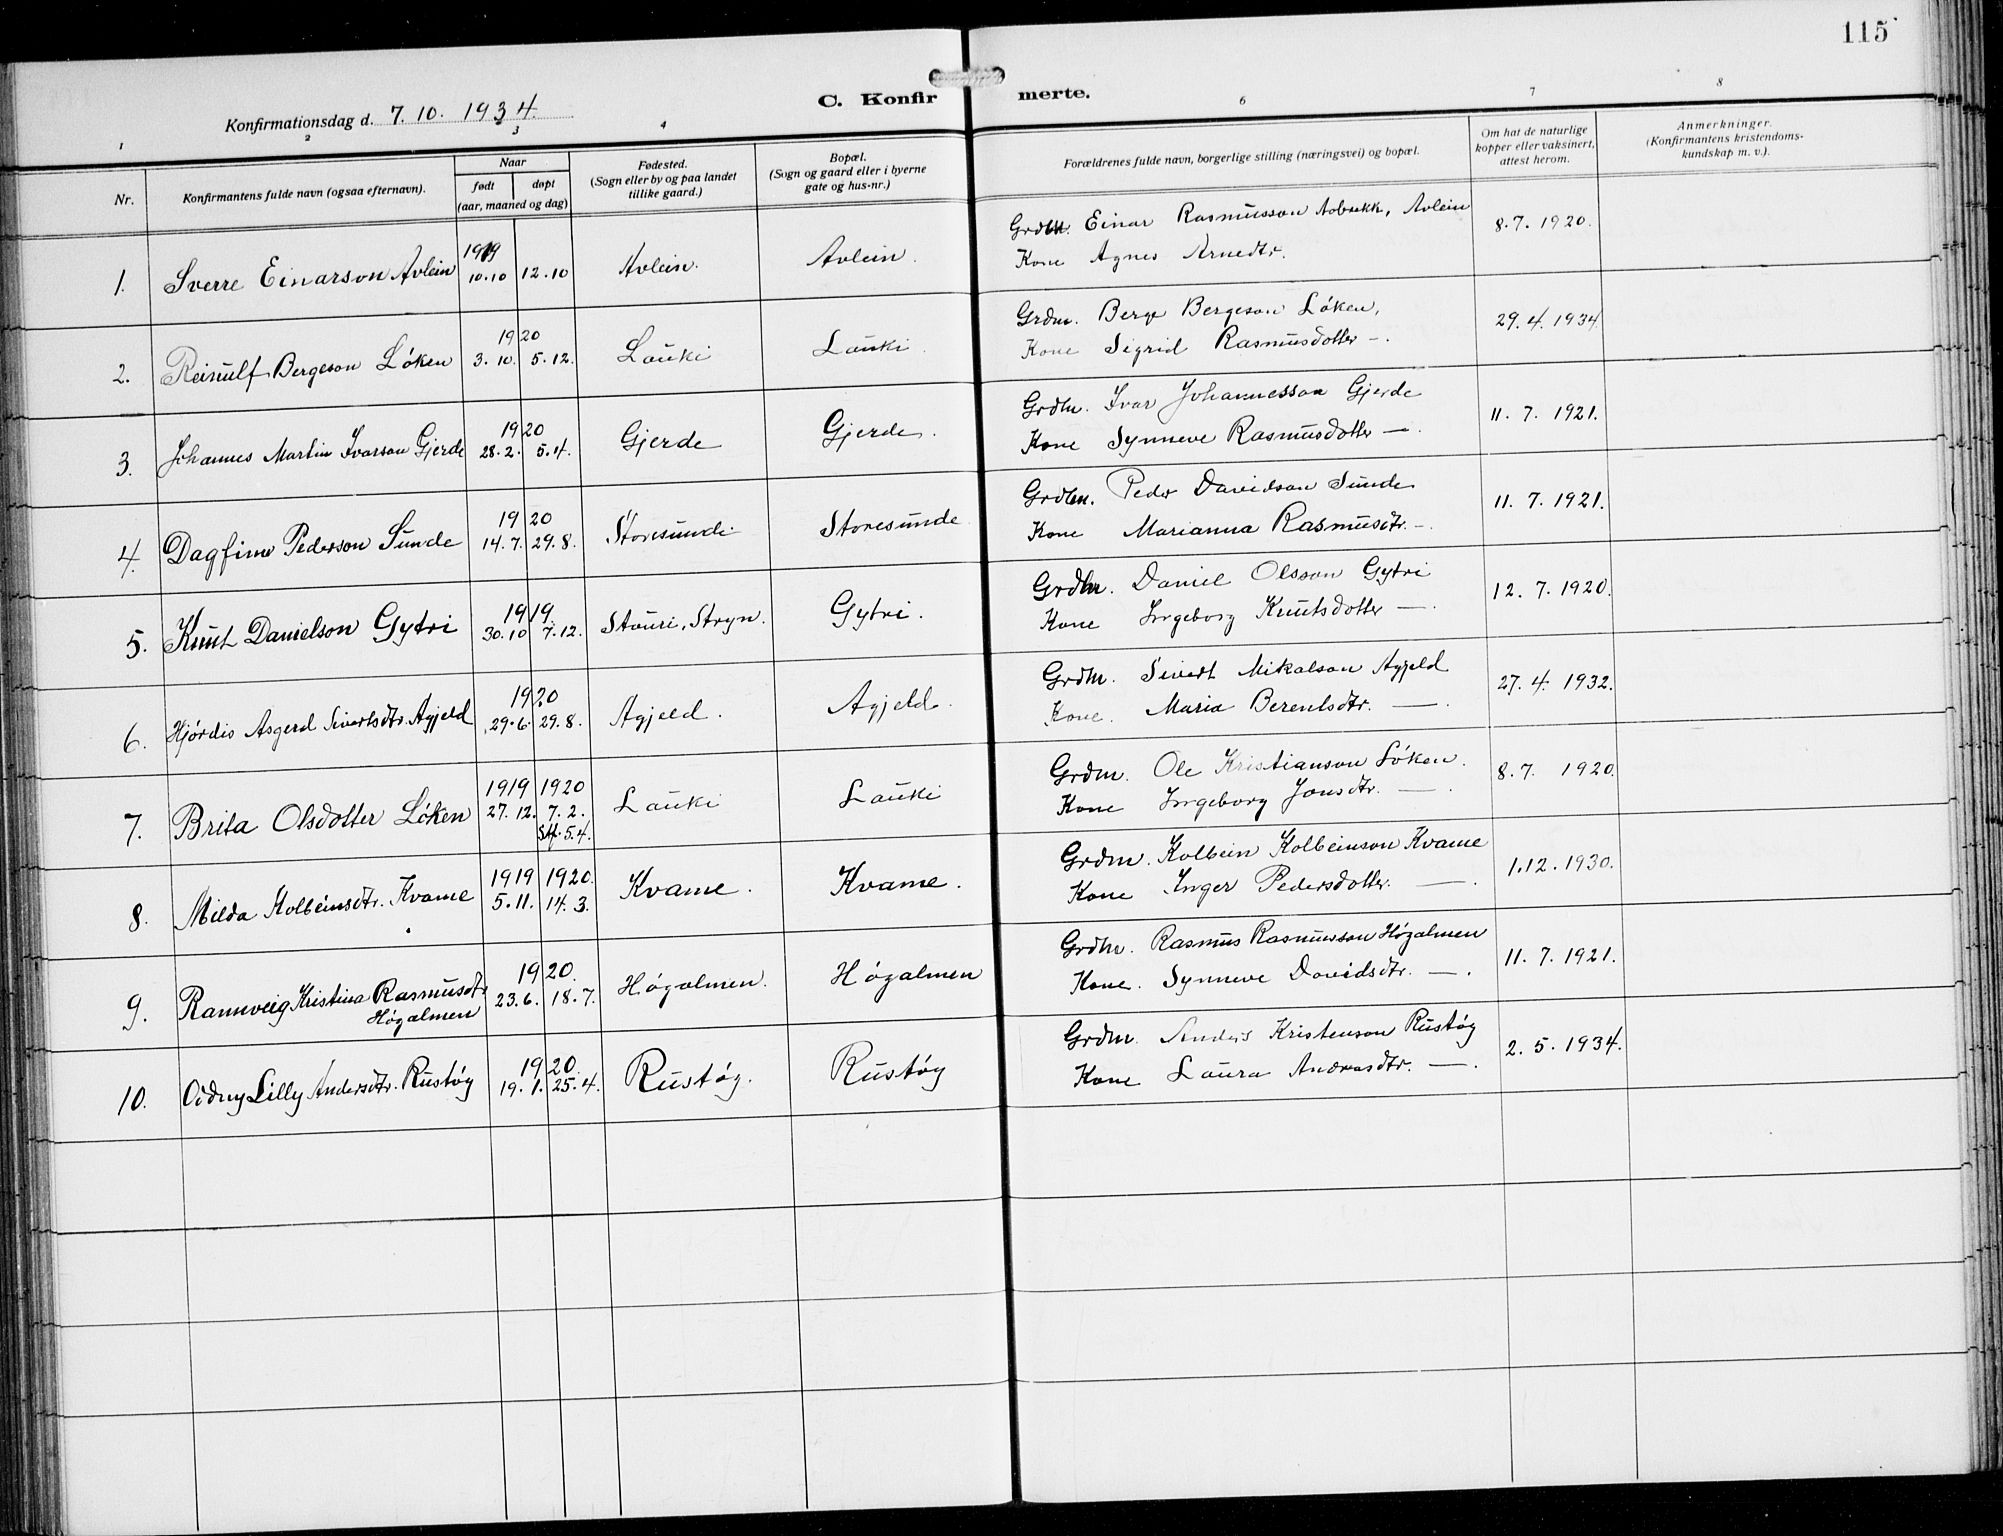 115
C. Konfirmerte.
Konfirmationsdag d. 7. 10. 1934.
1 2 3 4 6 7 8
Nr.
Konfirmantens fulde navn (ogsaa efternavn).
Naar
født døpt
(aar, maaned og dag)
Fødested.
(Sogn eller by og paa landet
tillike gaard.)
Bopæl.
(Sogn og gaard eller i byerne
gate og hus-nr.)
Forældrenes fulde navn, borgerlige stilling (næringsvei) og bopæl.
Om hat de naturlige
kopper eller vaksinert,
attest herom.
Anmerkninger.
(Konfirmantens kristendoms-
kundskap m. v.).
Grdbr. Einar Rasmusson Avlein 8.7. 1920.
1919
1. Sverre Einarson Avlein 10.10 12.10 Avlein. Avlein. Kone Agnes Arnedtr.
Grdm. Berge Bergeson Løken, 29.4. 1934
1920
2. Reinulf Bergeson Løken 3.10. 5.12. Lauki Lauki. Kone Sigrid Rasmusdotter -.
Grdbr. Ivar Johannesson Gjerde 11. 7. 1921.
1920
3. Johannes Martin Ivarson Gjerde 28.2. 5.4. Gjerde Gjerde. Kone Synneve Rasmusdotter —.
Grdbr. Peder Davidson Sunde 11. 7. 1921.
1920
4. Dagfinn Pederson Sunde 14.7. 29.8. Storesunde Storesunde Kone Marianna Rasmusdtr. -.
Grdbr. Daniel Olsson Gytri 12. 7. 1920.
1919.
5. Knut Danielson Gytri 30.10 7.12. Stauri, Stryn. Gytri. Kone Ingeborg Knutsdotter —.
Grdbr. Sivert Mikalson Agjeld 27. 4. 1932.
1920
6. Hjørdis Asgerd Sivertsdtr. Agjeld 29.6. 29.8. Agjeld. Agjeld. Kone. Maria Berentsdtr. —.
Grdm. Ole Kristianson Løken. 8. 7. 1920.
1919 1920
7. Brita Olsdotter Løken 27. 12. 7. 2. Lauki Lauki Kone Ingeborg Jonsdtr. —.
Stf. 5.4.
Grdm. Kolbein Kolbeinson Kvame 1.12. 1930.
1919 1920.
8. Milda Kolbeinsdtr. Kvame 5.11. 14. 3. Kvame. Kvame. Kone Inger Pedersdotter. —.
Grdbr. Rasmus Rasmusson Høgalmen 11. 7. 1921.
1920.
9. Rannveig Kristina Rasmusdtr 23.6. 18.7. Høgalmen. Høgalmen Kone. Synneve Davidsdtr. —.
Høgalmen
Grdm. Anders Kristenson Rustøy 2. 5. 1934.
1920.
10. Oddny Lilly Andersdtr. Rustøy 19. 1. 25. 4. Rustøy. Rustøy Kone Laura Andreasdtr. —.